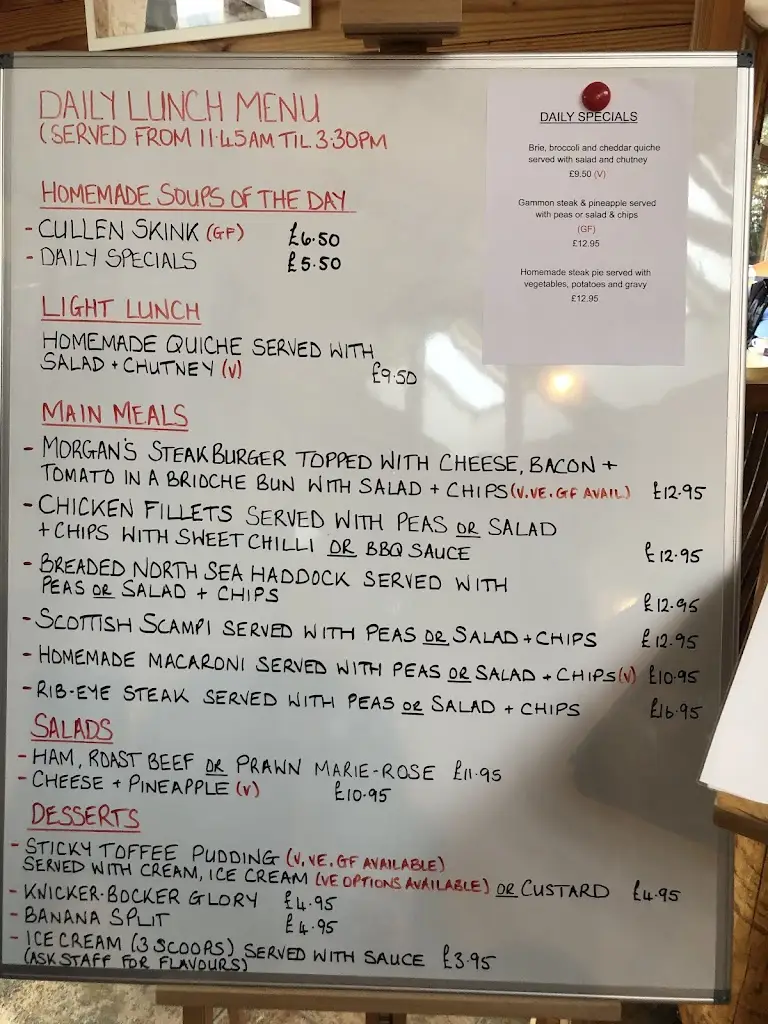 DAILY LUNCH MENU
(SERVED FROM 11·45AM TIL 3·30PM
HOMEMADE SOUPS OF THE DAY
- CULLEN SKINK (GF) £6.50
- DAILY SPECIALS £5.50
LIGHT LUNCH
HOMEMADE QUICHE SERVED WITH
SALAD + CHUTNEY (V) £9.50
MAIN MEALS
- MORGAN'S STEAK BURGER TOPPED WITH CHEESE, BACON +
TOMATO IN A BRIOCHE BUN WITH SALAD + CHIPS (V.VE.GF AVAIL) £12.95
- CHICKEN FILLETS SERVED WITH PEAS OR SALAD
+ CHIPS WITH SWEET CHILLI OR BBQ SAUCE £12.95
- BREADED NORTH SEA HADDOCK SERVED WITH
PEAS OR SALAD + CHIPS £12.95
- SCOTTISH SCAMPI SERVED WITH PEAS OR SALAD + CHIPS £12.95
- HOMEMADE MACARONI SERVED WITH PEAS OR SALAD + CHIPS (V) £10.95
- RIB-EYE STEAK SERVED WITH PEAS OR SALAD + CHIPS £16.95
SALADS
- HAM, ROAST BEEF OR PRAWN MARIE-ROSE £11.95
- CHEESE + PINEAPPLE (V) £10.95
DESSERTS
- STICKY TOFFEE PUDDING (V, VE. GF AVAILABLE)
SERVED WITH CREAM, ICE CREAM (VE OPTIONS AVAILABLE) OR CUSTARD £4.95
- KNICKER-BOCKER GLORY £4.95
- BANANA SPLIT £4.95
- ICE CREAM (3 SCOOPS) SERVED WITH SAUCE £3.95
(ASK STAFF FOR FLAVOURS)
DAILY SPECIALS
Brie, broccoli and cheddar quiche
served with salad and chutney
£9.50 (V)
Gammon steak & pineapple served
with peas or salad & chips
(GF)
£12.95
Homemade steak pie served with
vegetables, potatoes and gravy
£12.95